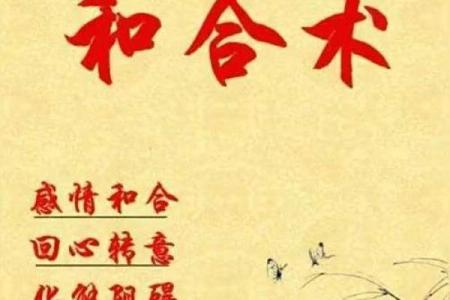 和合术
感情和合
回心转意
化解阻碍